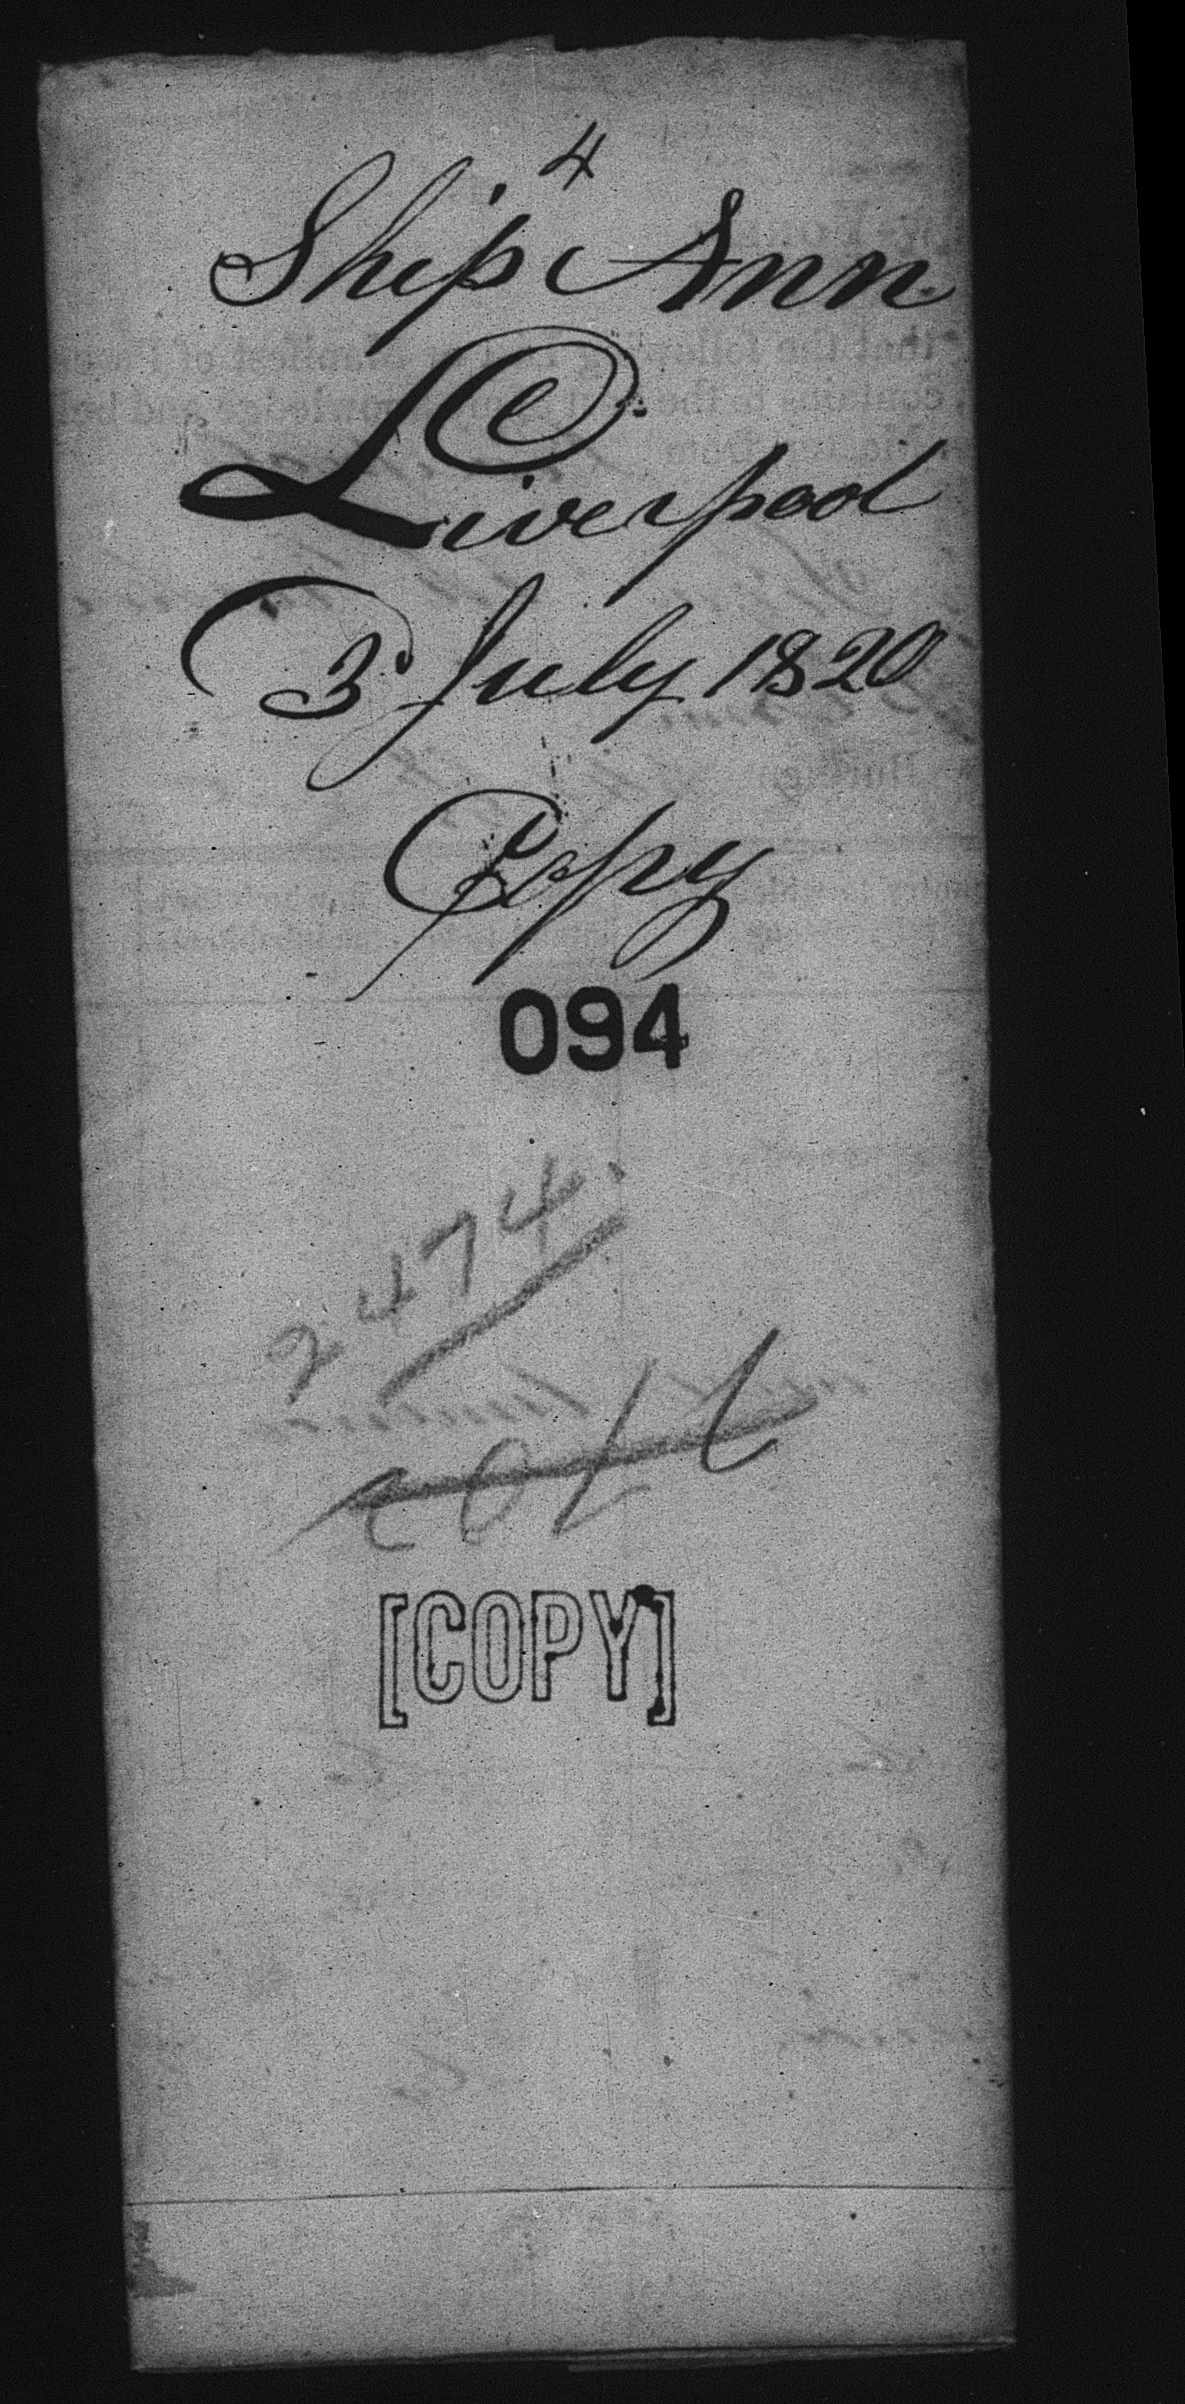 4
Ship Ann
Liverpool
3 July 1820
Copy
094
2474.
[COPY]